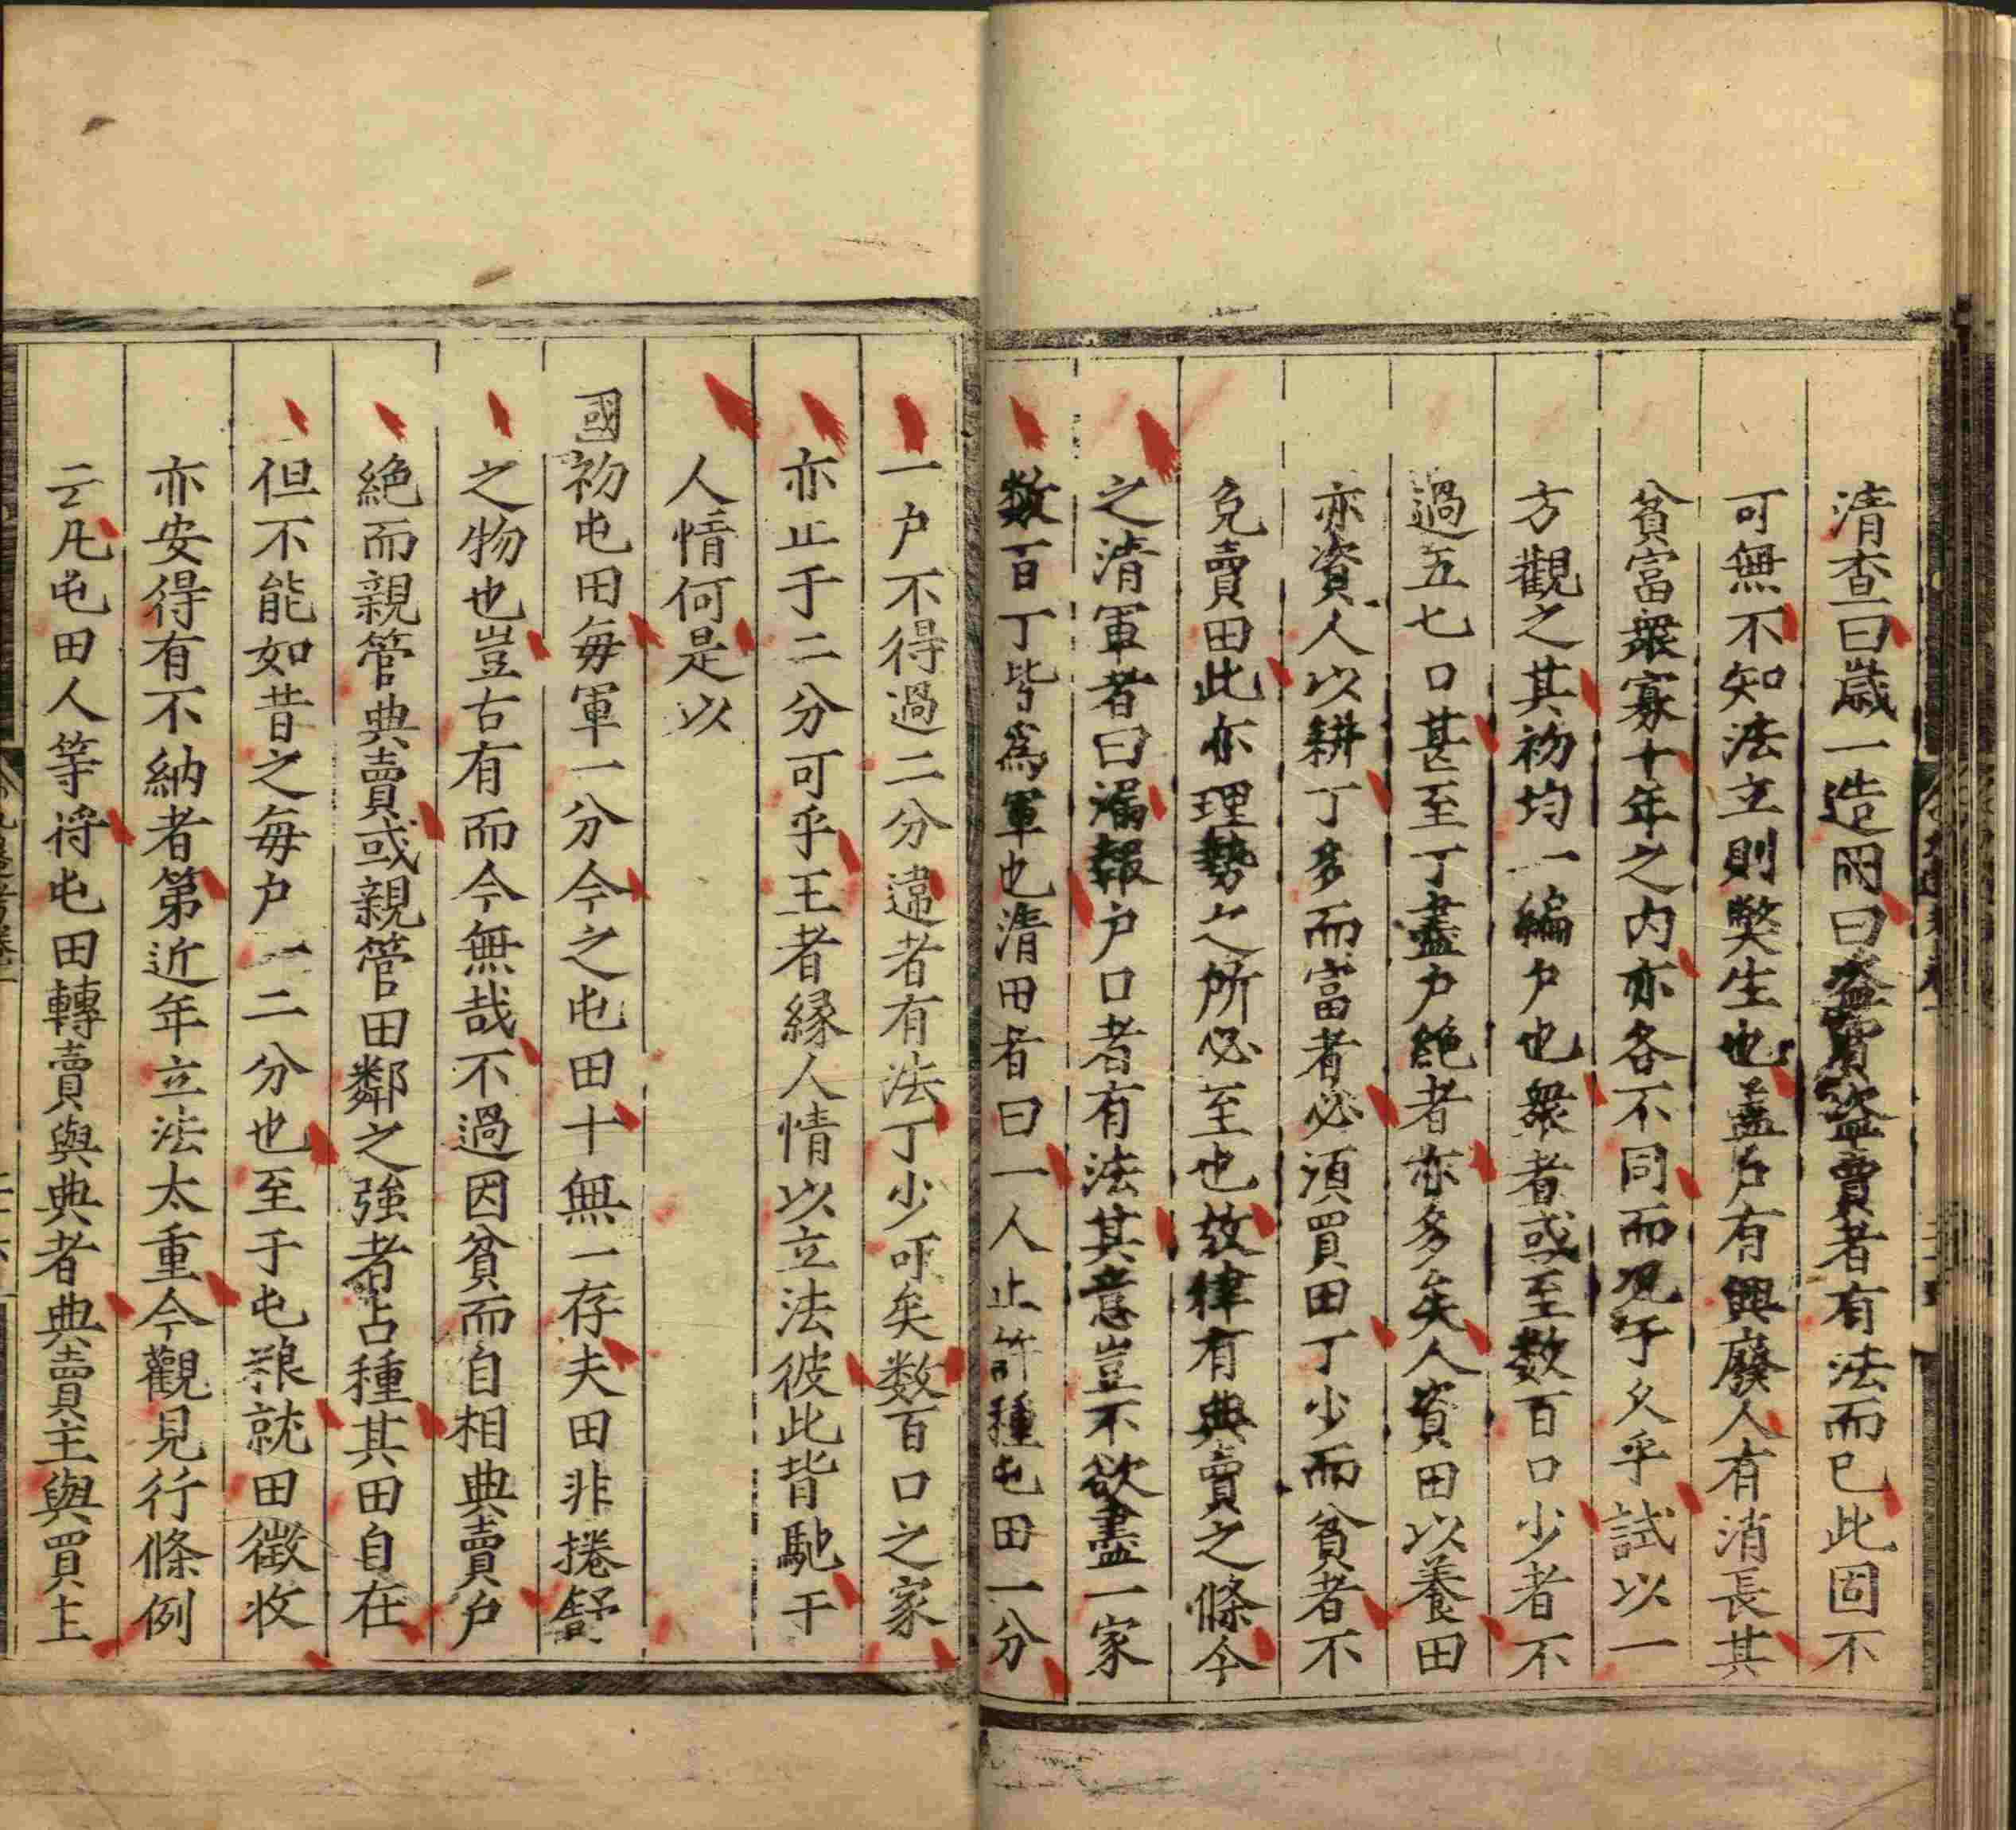 清查曰歲一造冊曰盜賣盜賣者有法而已此固不
可無不知法立則獘生也盖戶有興廢人有消長其
貧富衆寡十年之内亦各不同而况于久乎試以一
方觀之其初均一編户也衆者或至数百口少者不
過五七口甚至丁盡户絶者亦多矣人資田以養田
亦資人以耕丁多而富者必須買田丁少而貧者不
免賣田此亦理勢之所必至也故律有典賣之條今
之清軍者曰漏報户口者有法其意豈不欲盡一家
数百丁皆爲軍也清田者曰一人止許種屯田一分
一户不得過二分違者有法丁少可矣数百口之家
亦止于二分可乎王者縁人情以立法彼此皆馳于
人情何是以
國初屯田每軍一分今之屯田十無一存夫田非捲舒
之物也豈古有而今無哉不過因貧而自相典賣户
絶而親管典賣或親管田鄰之強者占種其田自在
但不能如昔之每户一二分也至于屯粮就田徵收
亦安得有不納者第近年立法太重今觀見行條例
云凡屯田人等将屯田轉賣與典者典賣主與買主